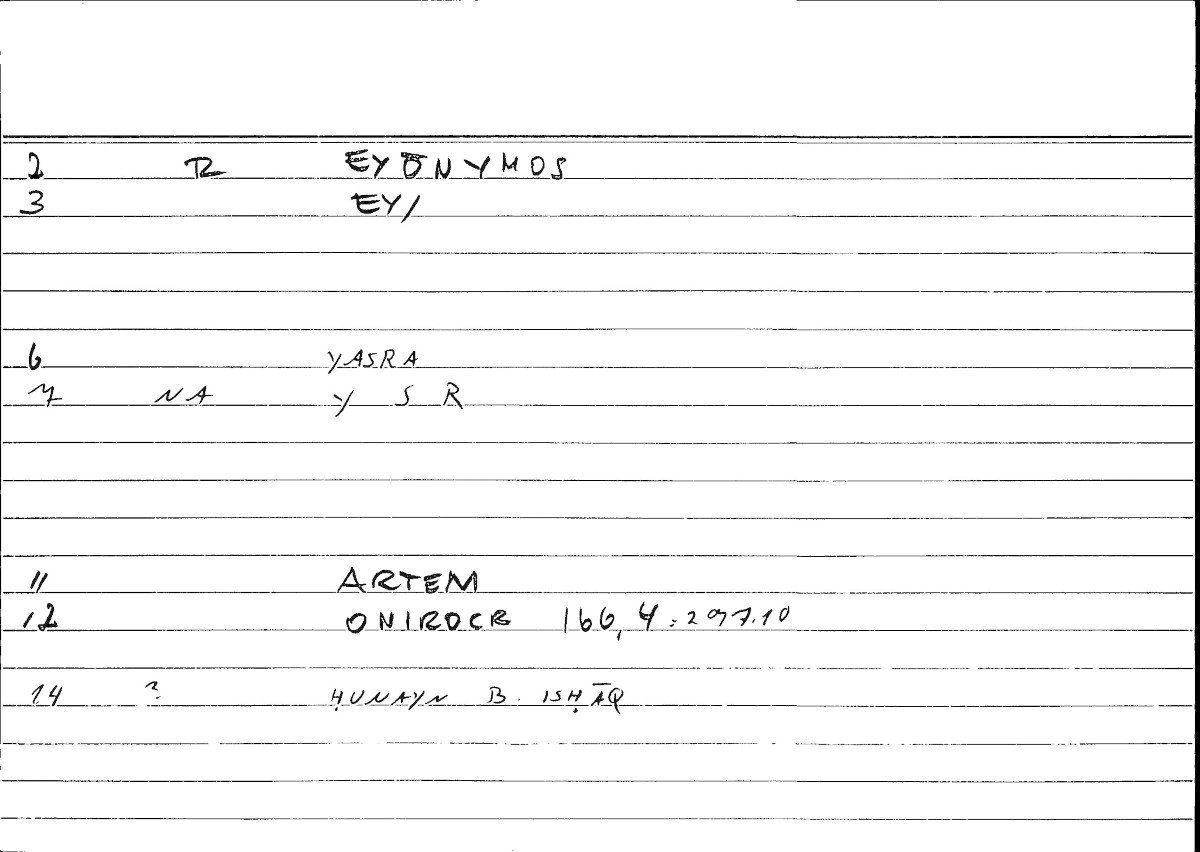 2 R EYŌNYMOS
3 EY/
6 YASRA
7 NA Y S R
11 ARTEM
12 ONIROCR 166,4:297.10
14 ? ḤUNAYN B. ISḤĀQ